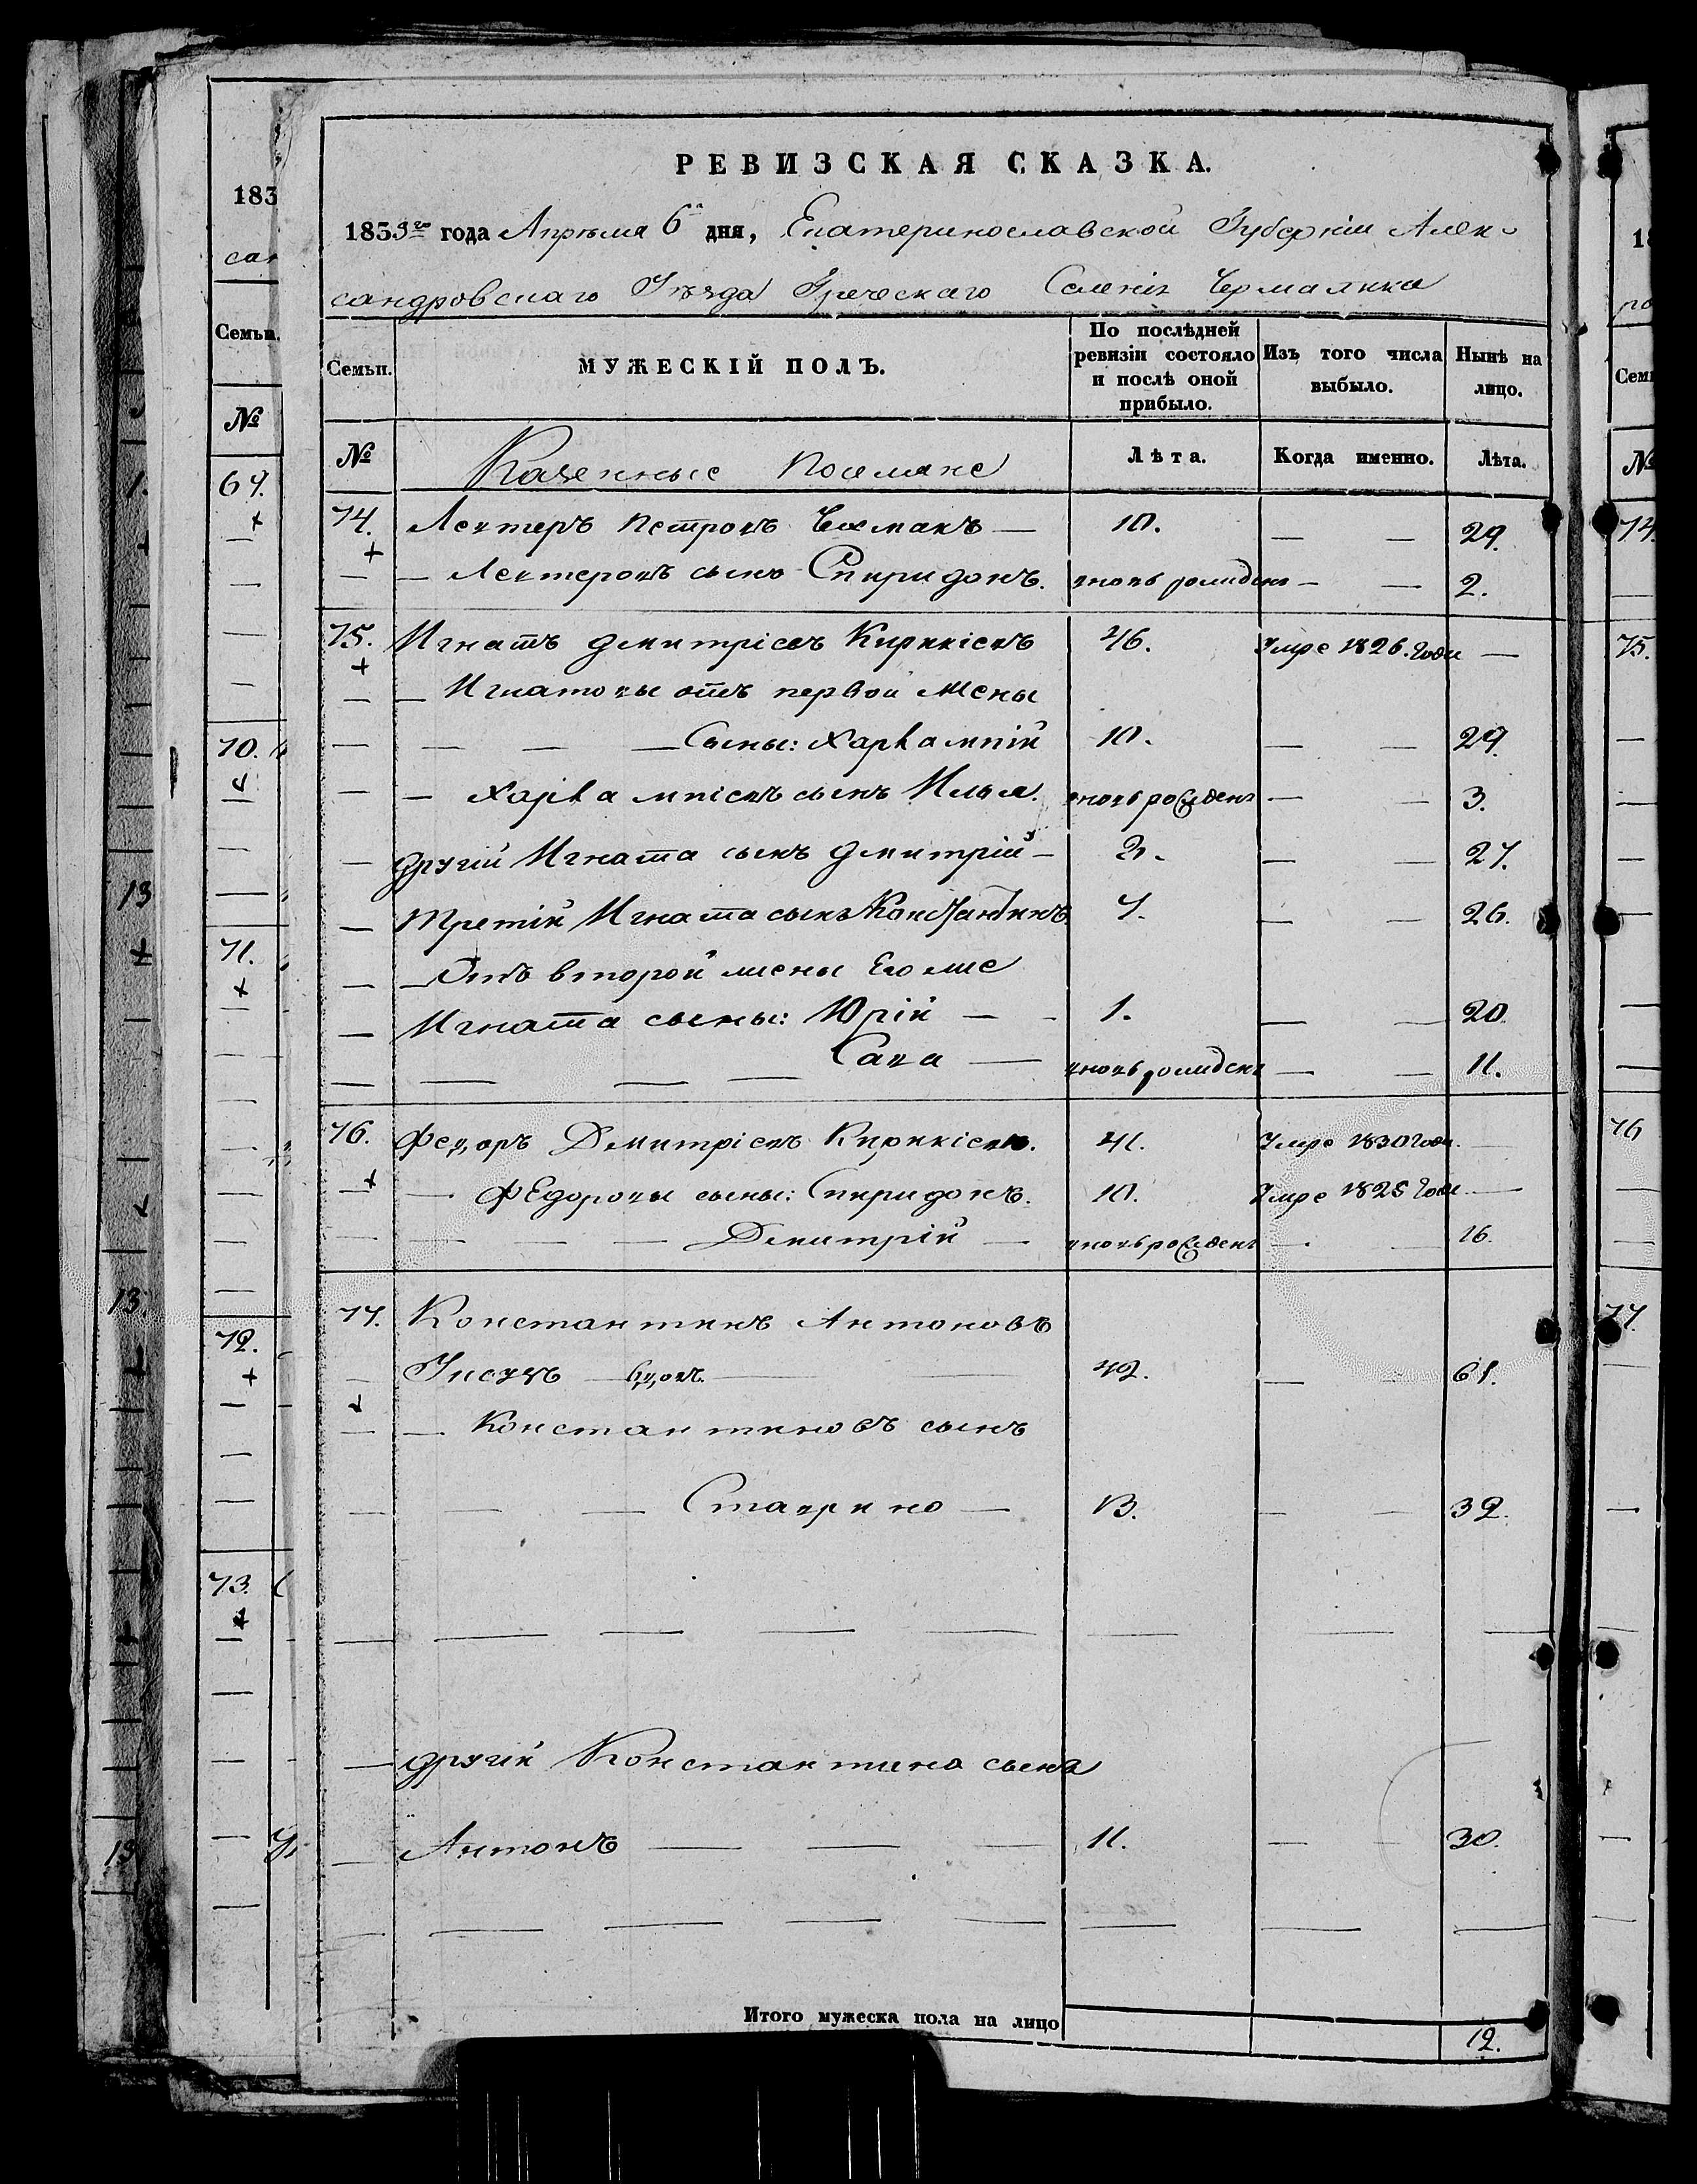 РЕВИЗСКАЯ СКАЗКА.
1835го года Апреля 6 дня, Екатеринославской Губерніи Алек-
сандровскаго Уѣзда Греческаго Селенія Чермалыка
Семьи.
МУЖЕСКІЙ ПОЛЪ.
По послѣдней ревизіи состояло и послѣ оной прибыло.
Изъ того числа выбыло.
Нынѣ на лицо.
№ Казенные Поселяне Лѣта. Когда именно. Лѣта.
74. Лефтеръ Петровъ Чохмакъ — 10. — — 29.
— — Лефтеровъ сынъ Спиридонъ. вновь рожденъ — — 2.
75. Игнатъ Дмитріевъ Кирикіевъ 46. Умре 1826. Года —
— — Игнатовы отъ первой жены
— — — — Сыны: Харлампій 10. — — 29.
— — Харлампіевъ сынъ Илья. вновь рожденъ — — 3.
— другій Игната сынъ Дмитрій — 8. — — 27.
— Третій Игната сынъ Константинъ 7. — — 26.
— — Отъ второй жены Его же
— Игната сыны: Юрій — — 1. — — 20.
— — — — Сава — вновь рожденъ — — 11.
76. Федоръ Дмитріевъ Кирикіевъ. 41. Умре 1830 Года. —
— — Федоровы сыны: Спиридонъ. 10. Умре 1825 Года —
— — — — Дмитрій — вновь рожденъ — — 16.
77. Константинъ Антоновъ
— — 42. — — 61.
— — Константиновъ сынъ
— — — Ставрино — 13. — — 32.
— другій Константина сынъ
— Антонъ — — — 11. — — 30.
Итого мужеска пола на лицо 12.
183
сан
Семьи.
№
69.
70.
71.
72.
73.
74.
75.
76
77.